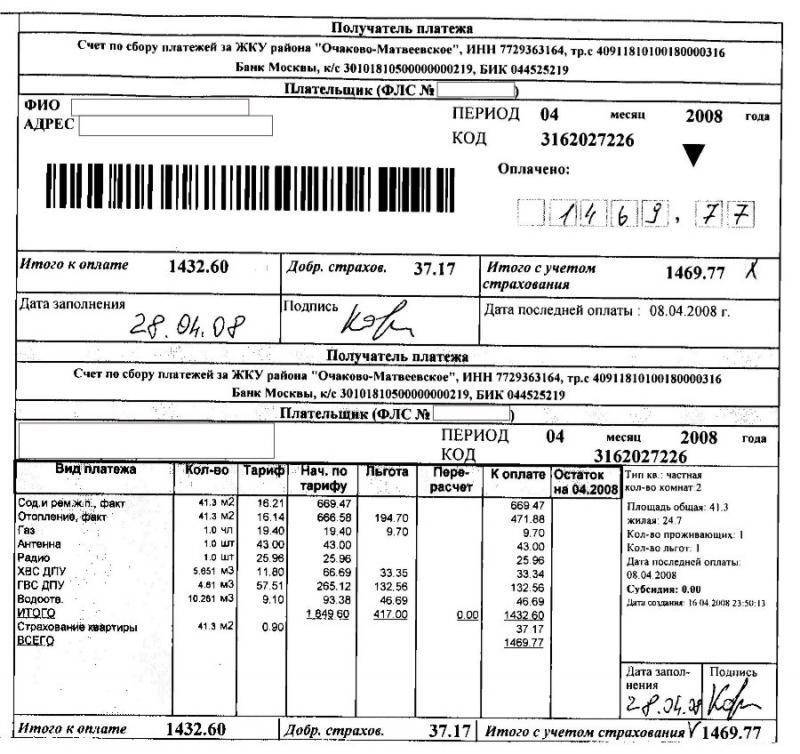 Получатель платежа
Счет по сбору платежей за ЖКУ района "Очаково-Матвеевское", ИНН 7729363164, тр.с 40911810100180000316
Банк Москвы, к/с 30101810500000000219, БИК 044525219
Плательщик (ФЛС № )
ФИО
АДРЕС
ПЕРИОД 04 месяц 2008 года
КОД 3162027226
Оплачено:
1469,77
Итого к оплате 1432.60 Добр. страхов. 37.17 Итого с учетом страхования 1469.77
Дата заполнения 28.04.08 Подпись Дата последней оплаты : 08.04.2008 г.
Получатель платежа
Счет по сбору платежей за ЖКУ района "Очаково-Матвеевское", ИНН 7729363164, тр.с 40911810100180000316
Банк Москвы, к/с 30101810500000000219, БИК 044525219
Плательщик (ФЛС № )
ПЕРИОД 04 месяц 2008 года
КОД 3162027226
Вид платежа Кол-во Тариф Нач. по тарифу Льгота Пере-расчет К оплате Остаток на 04.2008
Сод.и рем.ж.п., факт 41.3 м2 16.21 669.47 669.47
Отопление, факт 41.3 м2 16.14 666.58 194.70 471.88
Газ 1.0 чл 19.40 19.40 9.70 9.70
Антенна 1.0 шт 43.00 43.00 43.00
Радио 1.0 шт 25.96 25.96 25.96
ХВС ДПУ 5.651 м3 11.80 66.69 33.35 33.34
ГВС ДПУ 4.61 м3 57.51 265.12 132.56 132.56
Водоотв. 10.261 м3 9.10 93.38 46.69 46.69
ИТОГО 1 849.60 417.00 0.00 1432.60
Страхование квартиры 41.3 м2 0.90 37.17
ВСЕГО 1469.77
Тип кв.: частная
кол-во комнат 2
Площадь общая: 41.3
жилая: 24.7
Кол-во проживающих: 1
Кол-во льгот: 1
Дата последней оплаты:
08.04.2008
Субсидия: 0.00
Дата создания: 16.04.2008 23:50:13
Дата запол-нения 28.04.08 Подпись
Итого к оплате 1432.60 Добр. страхов. 37.17 Итого с учетом страхования 1469.77